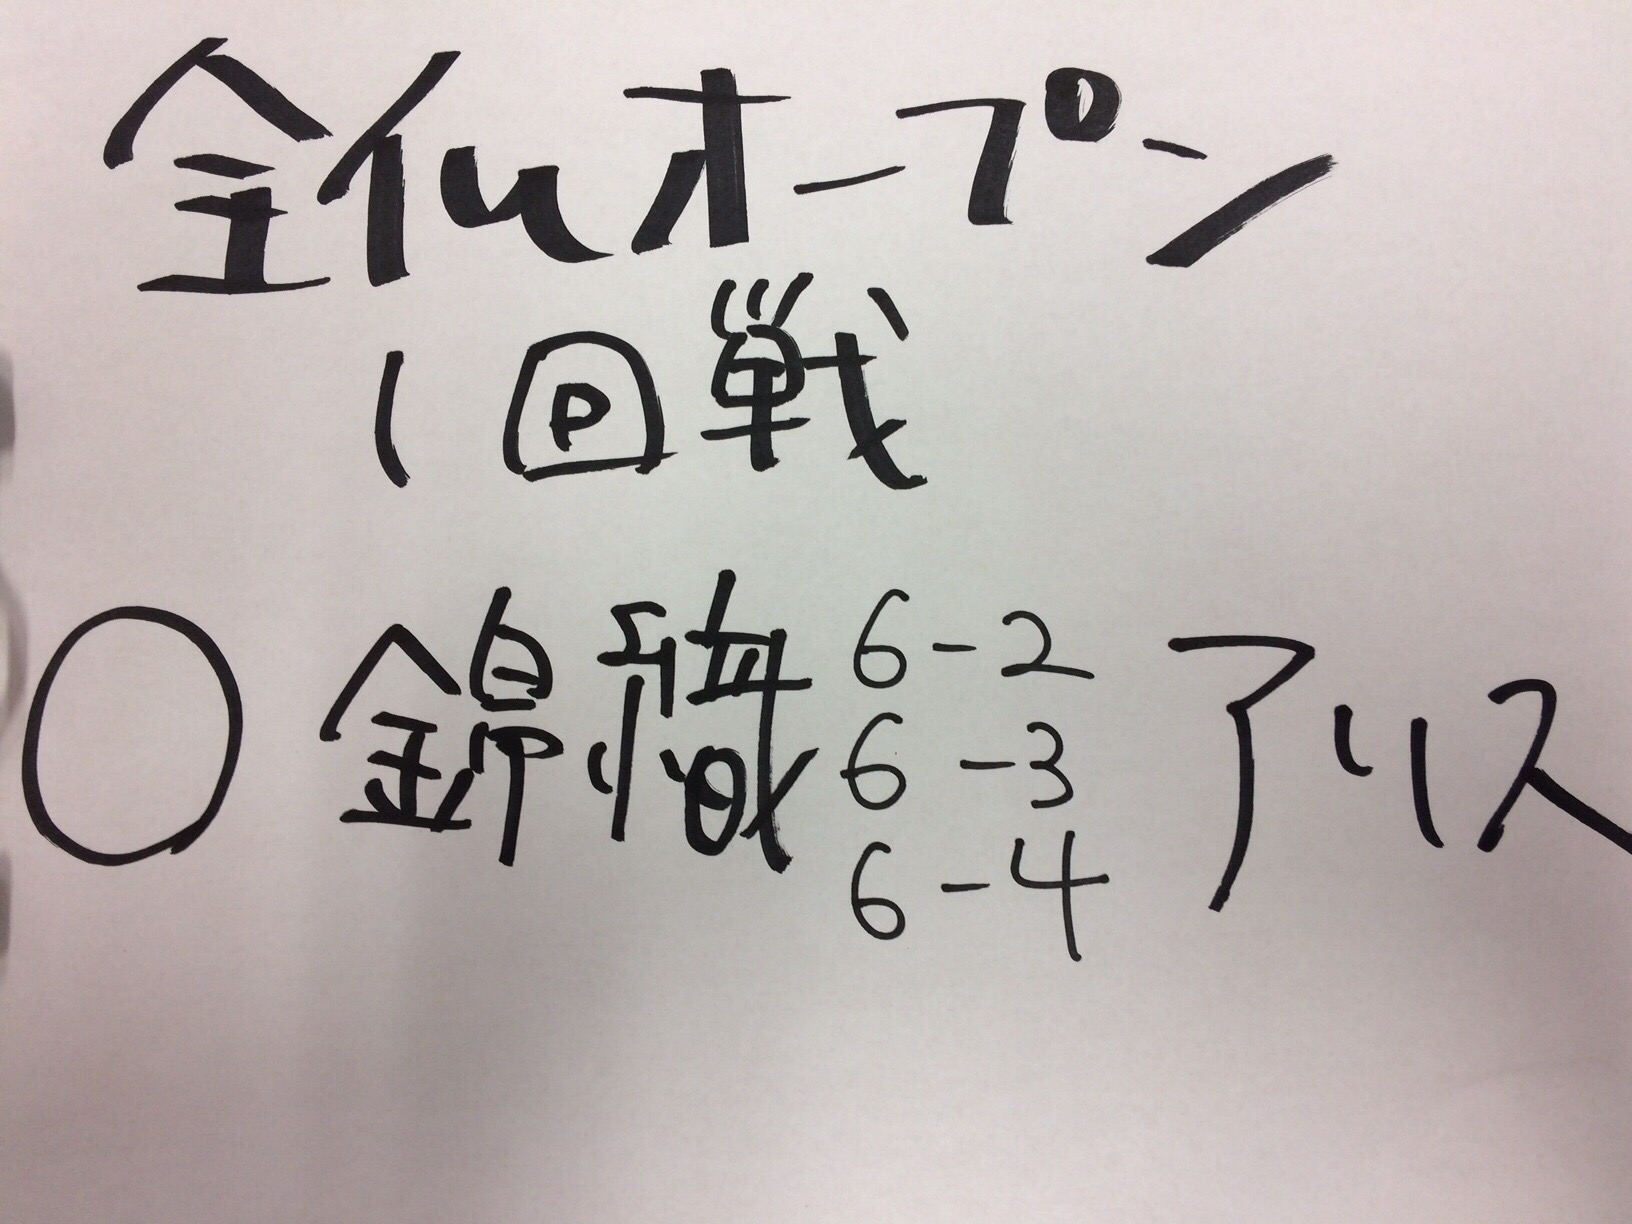 全仏オープン
1回戦
○ 錦織 6-2 アリス
6-3
6-4